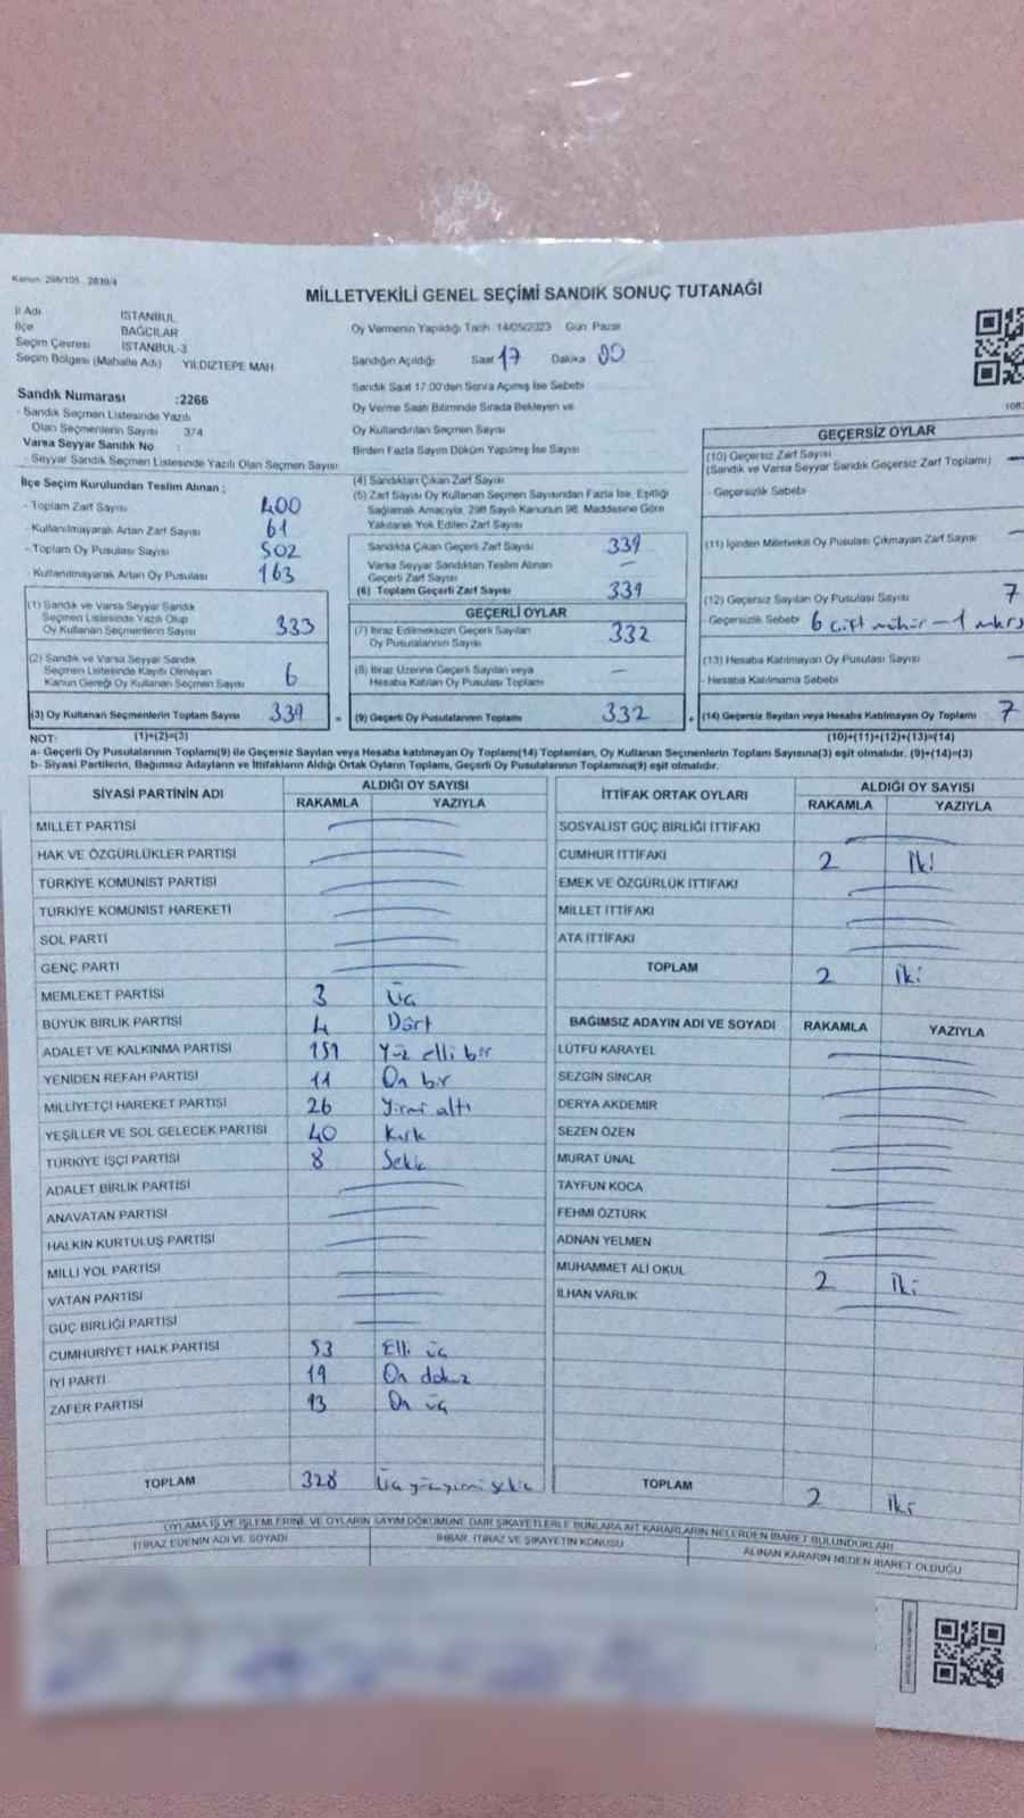 Kanun: 298/105 - 2839/4
MİLLETVEKİLİ GENEL SEÇİMİ SANDIK SONUÇ TUTANAĞI
İl Adı İSTANBUL
İlçe BAĞCILAR
Seçim Çevresi İSTANBUL-3
Seçim Bölgesi (Mahalle Adı) YILDIZTEPE MAH.
Oy Vermenin Yapıldığı Tarih: 14/05/2023 Gün: Pazar
Sandığın Açıldığı Saat 17 Dakika 00
Sandık Saat 17:00'den Sonra Açılmış İse Sebebi
Oy Verme Saati Bitiminde Sırada Bekleyen ve
Oy Kullandırılan Seçmen Sayısı
Birden Fazla Sayım Döküm Yapılmış İse Sayısı
Sandık Numarası :2266
- Sandık Seçmen Listesinde Yazılı
Olan Seçmenlerin Sayısı 374
Varsa Seyyar Sandık No :
- Seyyar Sandık Seçmen Listesinde Yazılı Olan Seçmen Sayısı
İlçe Seçim Kurulundan Teslim Alınan ;
- Toplam Zarf Sayısı 400
- Kullanılmayarak Artan Zarf Sayısı 61
- Toplam Oy Pusulası Sayısı 502
- Kullanılmayarak Artan Oy Pusulası 163
(1) Sandık ve Varsa Seyyar Sandık
Seçmen Listesinde Yazılı Olup
Oy Kullanan Seçmenlerin Sayısı 333
(2) Sandık ve Varsa Seyyar Sandık
Seçmen Listesinde Kayıtlı Olmayan
Kanun Gereği Oy Kullanan Seçmen Sayısı 6
(3) Oy Kullanan Seçmenlerin Toplam Sayısı 339
(4) Sandıktan Çıkan Zarf Sayısı
(5) Zarf Sayısı Oy Kullanan Seçmen Sayısından Fazla İse, Eşitliği
Sağlamak Amacıyla, 298 Sayılı Kanunun 98. Maddesine Göre
Yakılarak Yok Edilen Zarf Sayısı
Sandıkta Çıkan Geçerli Zarf Sayısı 339
Varsa Seyyar Sandıktan Teslim Alınan
Geçerli Zarf Sayısı —
(6) Toplam Geçerli Zarf Sayısı 339
GEÇERLİ OYLAR
(7) İtiraz Edilmeksizin Geçerli Sayılan
Oy Pusulalarının Sayısı 332
(8) İtiraz Üzerine Geçerli Sayılan veya
Hesaba Katılan Oy Pusulası Toplamı —
= (9) Geçerli Oy Pusulalarının Toplamı 332
GEÇERSİZ OYLAR
(10) Geçersiz Zarf Sayısı
(Sandık ve Varsa Seyyar Sandık Geçersiz Zarf Toplamı) —
- Geçersizlik Sebebi
(11) İçinden Milletvekili Oy Pusulası Çıkmayan Zarf Sayısı —
(12) Geçersiz Sayılan Oy Pusulası Sayısı 7
- Geçersizlik Sebebi 6 çift mühür – 1
(13) Hesaba Katılmayan Oy Pusulası Sayısı —
- Hesaba Katılmama Sebebi
+ (14) Geçersiz Sayılan veya Hesaba Katılmayan Oy Toplamı 7
NOT: (1)+(2)=(3) (10)+(11)+(12)+(13)=(14)
a- Geçerli Oy Pusulalarının Toplamı(9) ile Geçersiz Sayılan veya Hesaba katılmayan Oy Toplamı(14) Toplamları, Oy Kullanan Seçmenlerin Toplam Sayısına(3) eşit olmalıdır. (9)+(14)=(3)
b- Siyasi Partilerin, Bağımsız Adayların ve İttifakların Aldığı Ortak Oyların Toplamı, Geçerli Oy Pusulalarının Toplamına(9) eşit olmalıdır.
SİYASİ PARTİNİN ADI ALDIĞI OY SAYISI
RAKAMLA YAZIYLA
MİLLET PARTİSİ
HAK VE ÖZGÜRLÜKLER PARTİSİ
TÜRKİYE KOMÜNİST PARTİSİ
TÜRKİYE KOMÜNİST HAREKETİ
SOL PARTİ
GENÇ PARTİ
MEMLEKET PARTİSİ 3 Üç
BÜYÜK BİRLİK PARTİSİ 4 Dört
ADALET VE KALKINMA PARTİSİ 151 Yüz elli bir
YENİDEN REFAH PARTİSİ 11 On bir
MİLLİYETÇİ HAREKET PARTİSİ 26 Yirmi altı
YEŞİLLER VE SOL GELECEK PARTİSİ 40 Kırk
TÜRKİYE İŞÇİ PARTİSİ 8 Sekiz
ADALET BİRLİK PARTİSİ
ANAVATAN PARTİSİ
HALKIN KURTULUŞ PARTİSİ
MİLLİ YOL PARTİSİ
VATAN PARTİSİ
GÜÇ BİRLİĞİ PARTİSİ
CUMHURİYET HALK PARTİSİ 53 Elli üç
İYİ PARTİ 19 On dokuz
ZAFER PARTİSİ 13 On üç
TOPLAM 328 Üç yüz yirmi sekiz
İTTİFAK ORTAK OYLARI ALDIĞI OY SAYISI
RAKAMLA YAZIYLA
SOSYALİST GÜÇ BİRLİĞİ İTTİFAKI
CUMHUR İTTİFAKI 2 İki
EMEK VE ÖZGÜRLÜK İTTİFAKI
MİLLET İTTİFAKI
ATA İTTİFAKI
TOPLAM 2 İki
BAĞIMSIZ ADAYIN ADI VE SOYADI RAKAMLA YAZIYLA
LÜTFÜ KARAYEL
SEZGİN SİNCAR
DERYA AKDEMİR
SEZEN ÖZEN
MURAT ÜNAL
TAYFUN KOCA
FEHMİ ÖZTÜRK
ADNAN YELMEN
MUHAMMET ALİ OKUL 2 İki
İLHAN VARLIK
TOPLAM 2 İki
OYLAMA İŞ VE İŞLEMLERİNE VE OYLARIN SAYIM DÖKÜMÜNE DAİR ŞİKAYETLERLE BUNLARA AİT KARARLARIN NELERDEN İBARET BULUNDUKLARI
İTİRAZ EDENİN ADI VE SOYADI İHBAR, İTİRAZ VE ŞİKAYETİN KONUSU ALINAN KARARIN NEDEN İBARET OLDUĞU